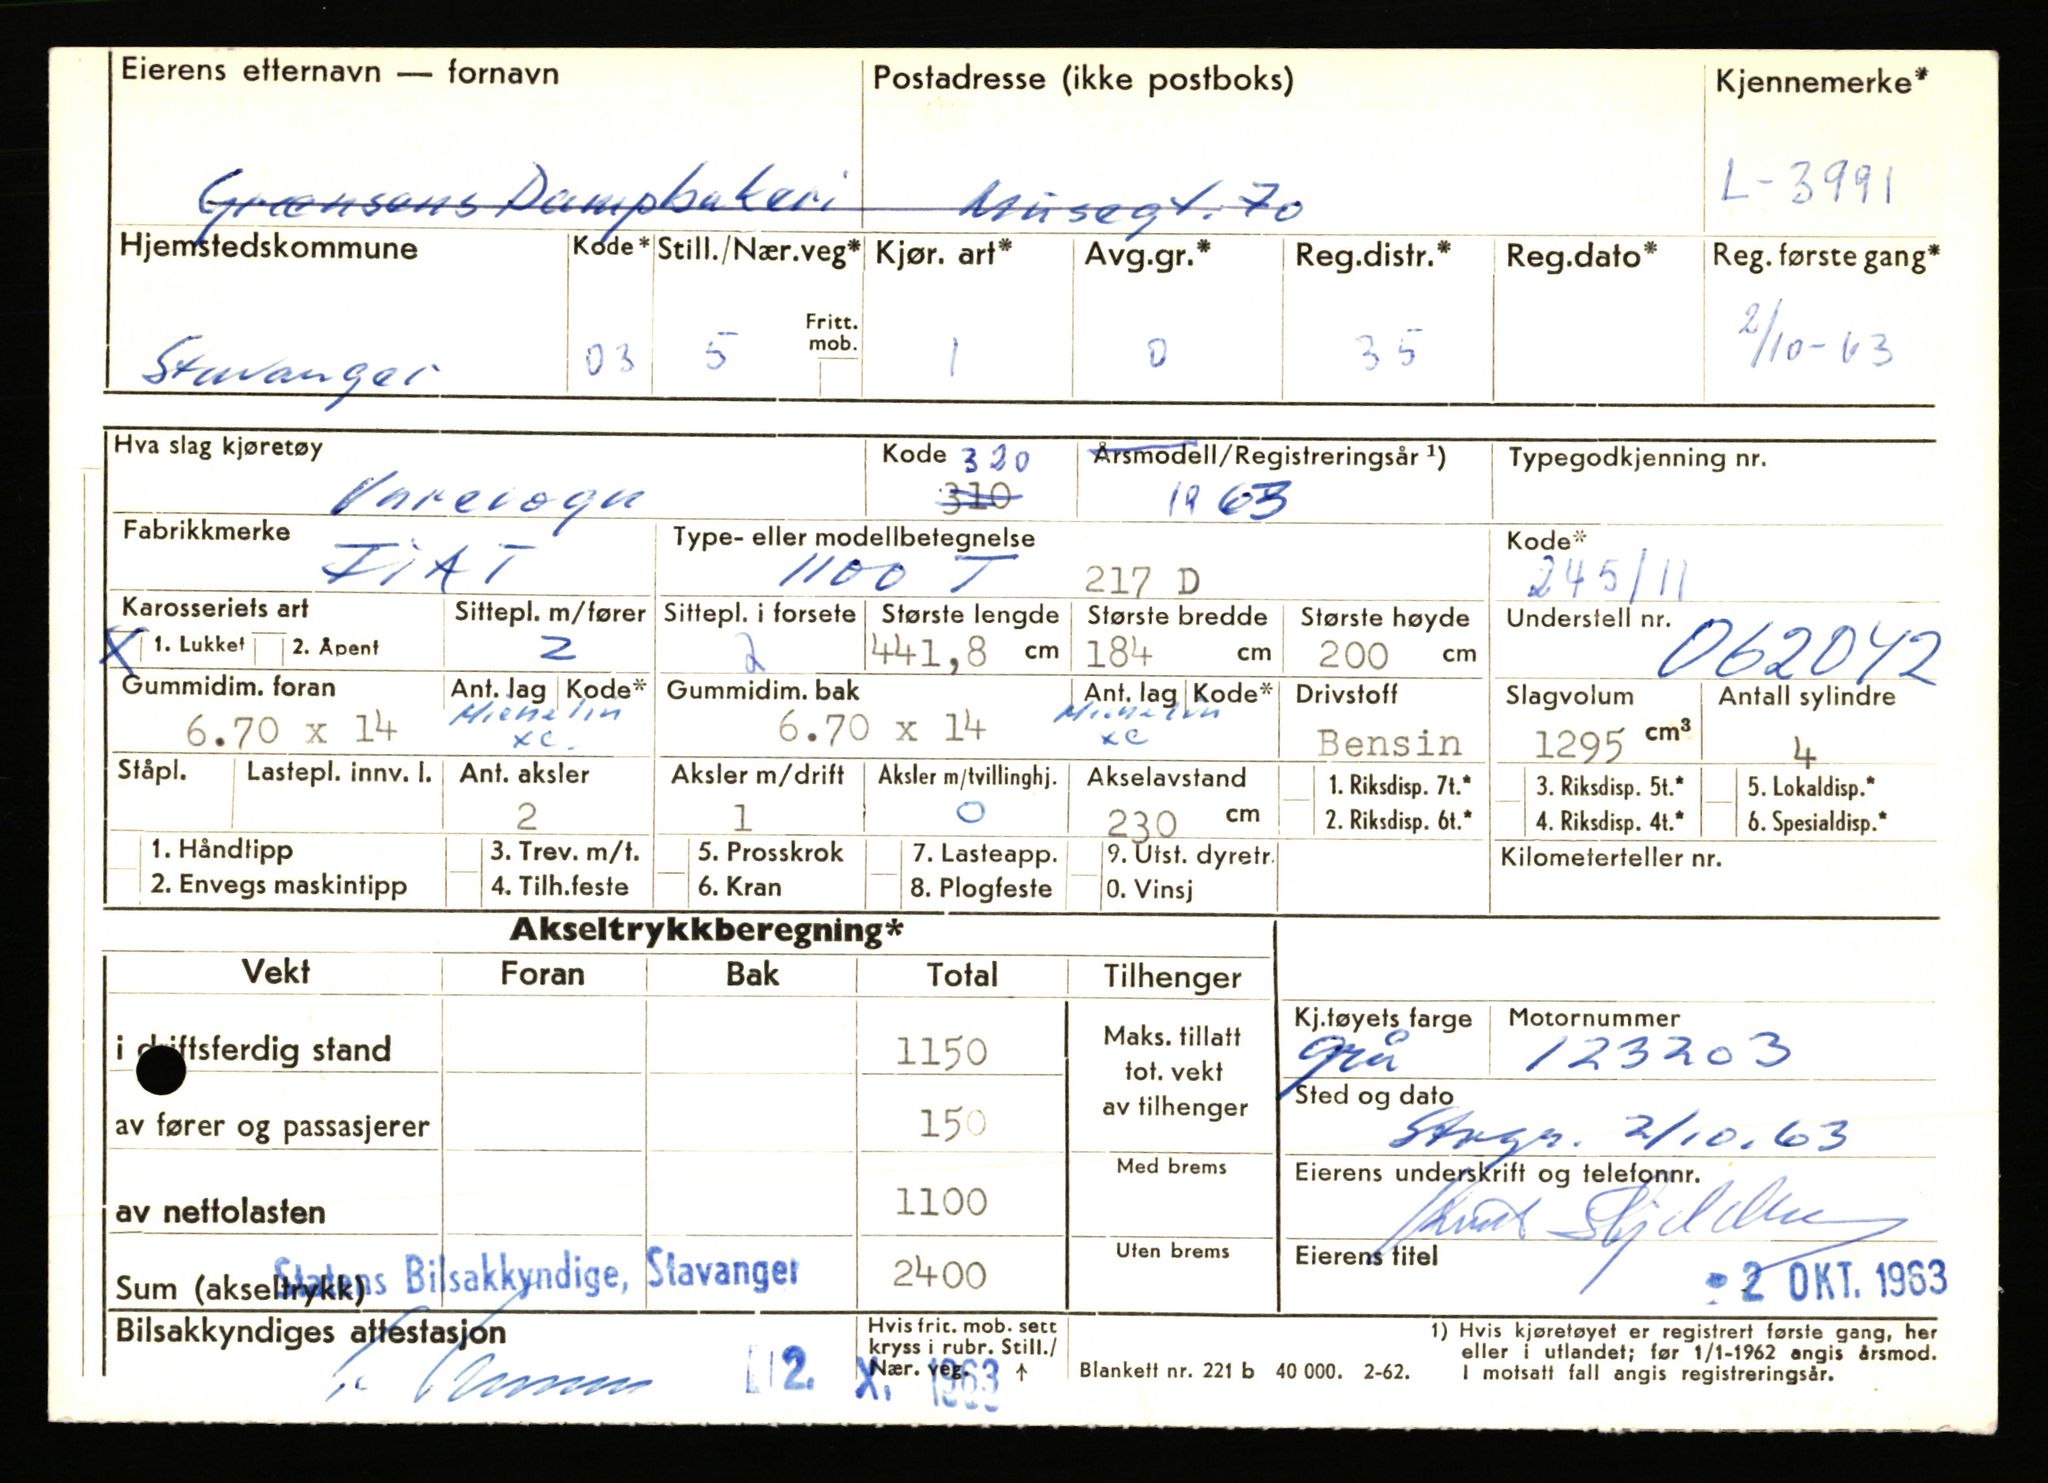 Eierens etternavn — fornavn Postadresse (ikke postboks) Kjennemerke*
Grænsens Dampbakeri Musegt. 70 L-3991
Hjemstedskommune Kode* Still./Nær.veg* Kjør. art* Avg.gr.* Reg.distr.* Reg.dato* Reg. første gang*
Fritt. mob.
Stavanger 03 5 1 0 35 2/10-63
Hva slag kjøretøy Kode 320 Årsmodell/Registreringsår ¹) Typegodkjenning nr.
Varevogn 310 1963
Fabrikkmerke Type- eller modellbetegnelse Kode*
FIAT 1100 T 217 D 245/11
Karosseriets art Sittepl. m/fører Sittepl. i forsete Største lengde Største bredde Største høyde Understell nr.
X 1. Lukket 2. Åpent 2 2 441,8 cm 184 cm 200 cm 062042
Gummidim. foran Ant. lag Kode* Gummidim. bak Ant. lag Kode* Drivstoff Slagvolum Antall sylindre
6.70 x 14 Michelin xc. 6.70 x 14 Michelin xc Bensin 1295 cm³ 4
Ståpl. Lastepl. innv. l. Ant. aksler Aksler m/drift Aksler m/tvillinghj. Akselavstand 1. Riksdisp. 7t.* 3. Riksdisp. 5t.* 5. Lokaldisp.*
2 1 0 230 cm 2. Riksdisp. 6t.* 4. Riksdisp. 4t.* 6. Spesialdisp.*
1. Håndtipp 3. Trev. m/t. 5. Prosskrok 7. Lasteapp. 9. Utst. dyretr. Kilometerteller nr.
2. Envegs maskintipp 4. Tilh.feste 6. Kran 8. Plogfeste 0. Vinsj
Akseltrykkberegning*
Vekt Foran Bak Total Tilhenger
i driftsferdig stand 1150 Maks. tillatt tot. vekt av tilhenger
av fører og passasjerer 150
Med brems
av nettolasten 1100
Uten brems
Sum (akseltrykk) 2400
Statens Bilsakkyndige, Stavanger
Kj.tøyets farge Motornummer
grå 123203
Sted og dato
Stvgr. 2/10.63
Eierens underskrift og telefonnr.
Knut
Eierens titel
- 2 OKT. 1963
Bilsakkyndiges attestasjon
2. X. 1963
Hvis frit. mob. sett
kryss i rubr. Still./
Nær. veg. ↑
Blankett nr. 221 b 40 000. 2-62.
1) Hvis kjøretøyet er registrert første gang, her
eller i utlandet; før 1/1-1962 angis årsmod.
I motsatt fall angis registreringsår.